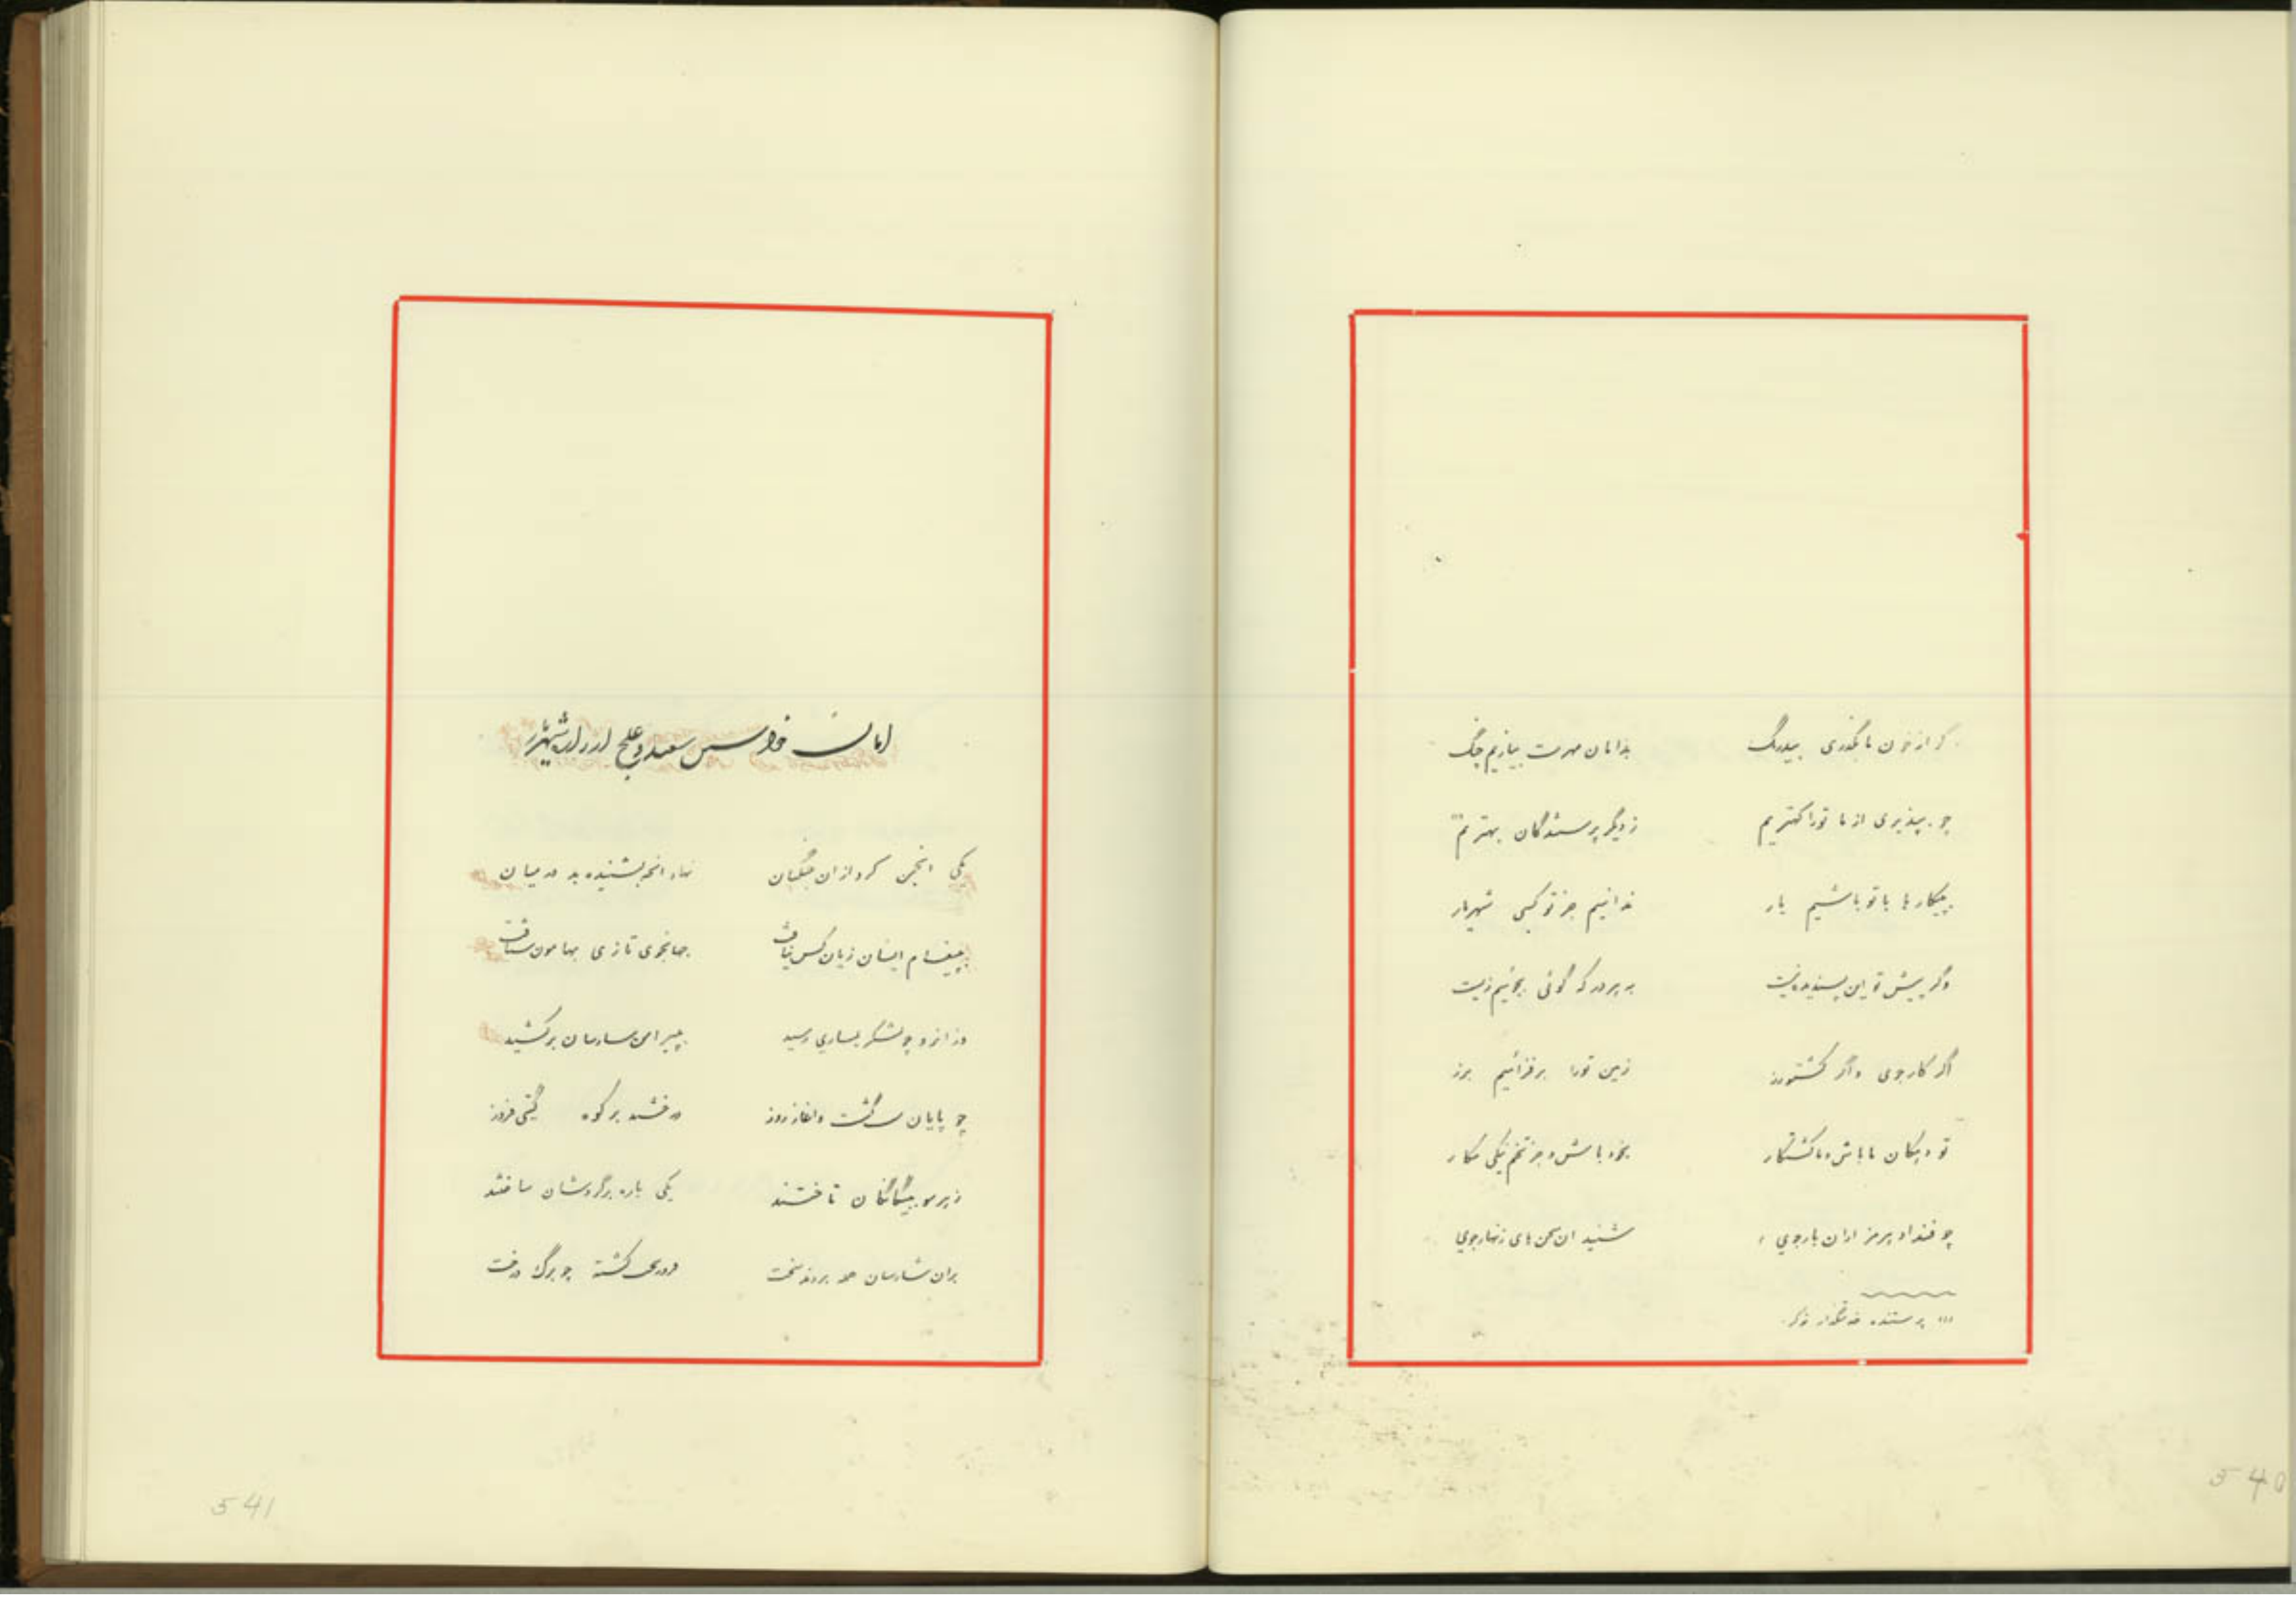 گر از خون ما بگذری بیدرنگ بدامان مهرت بیازیم چنگ
چو بپذیری از ما تورا کهتریم ز دیگر پرستندگان بهتریم
به پیکارها با تو باشیم یار ندانیم جز تو کسی شهریار
وگر پیش تو این پسندیده نیست به هر در که گوئی بجوئیم زیست
اگر کارجوی و اگر کشتورز زمین تورا برفزائیم برز
تو دهگان ما باش و ما کشتکار بخود باش و جز تخم نیکی مکار
چو شنید آن سخن های زنهارجوی
پرستنده خدمتگذار نوکر
540
یکی انجمن کرد از آن جنگیان نهاد آنچه بشنیده بد در میان
به پیغام ایشان زیان کس نیافت تازی بهامون شتافت
وز آنرو چو لشگر بساری رسید به پیرامن شارسان برکشید
چو پایان شب گشت و آغاز روز درخشید بر کوه گیتی فروز
ز هر سو بیگانگان تاختند یکی باره بر گردشان ساختند
بر آن شارسان حمله بردند سخت کشته چو برگ درخت
541